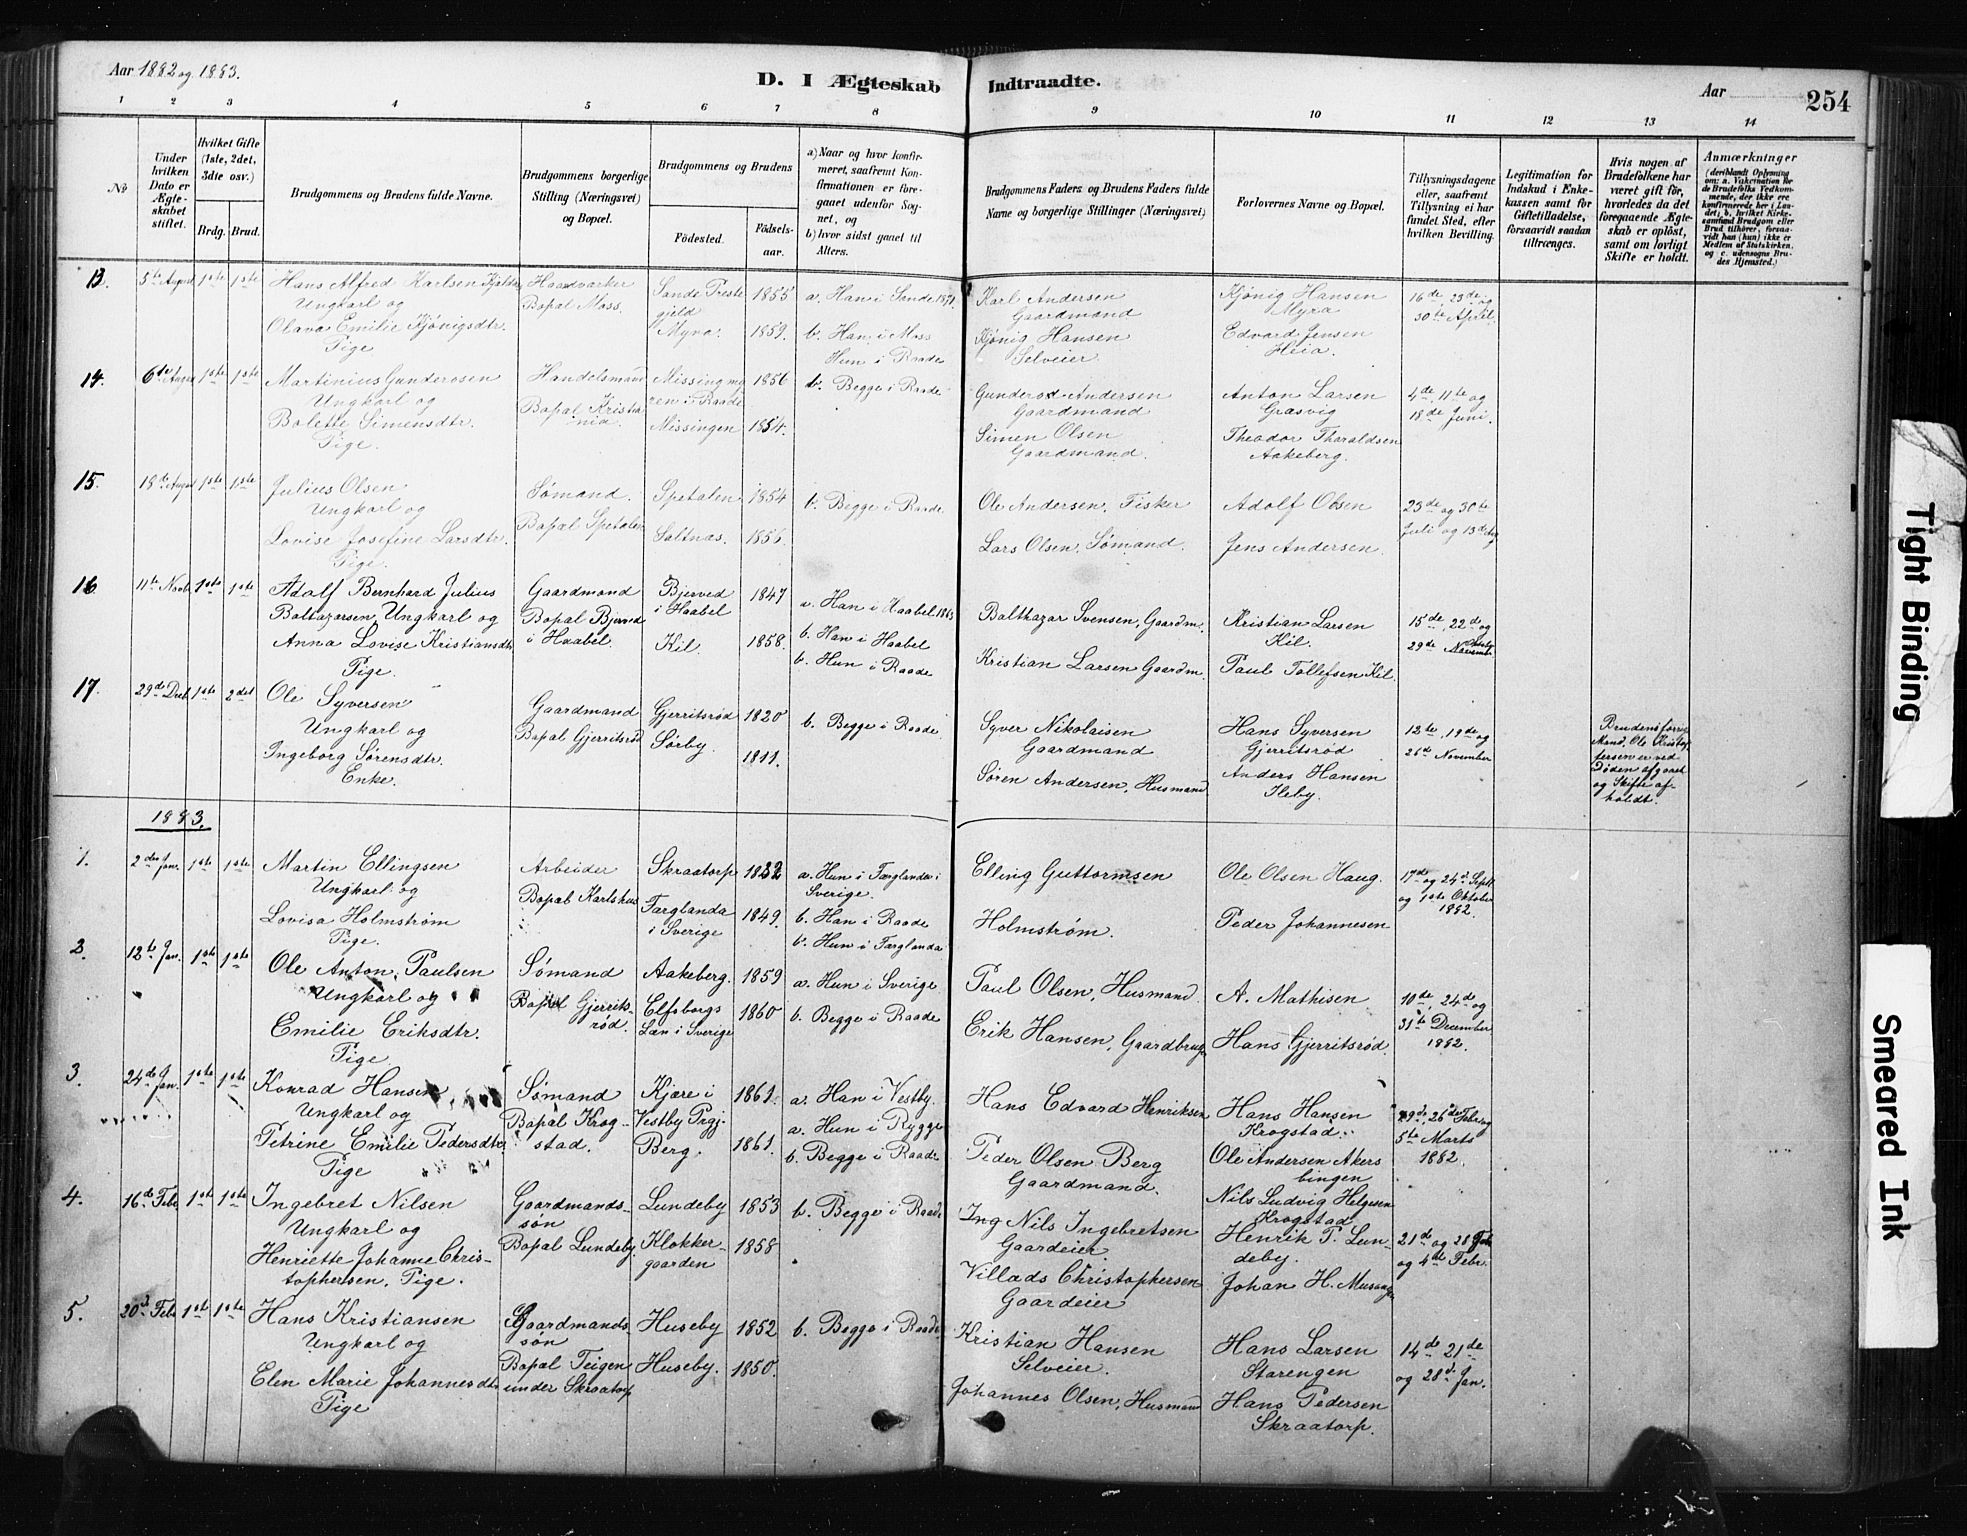 Aar 1882 og 1883.
D. I Ægteskab Indtraadte.
Aar
254
1 2 3 4 5 6 7 8 9 10 11 12 13 14
No
Under hvilken Dato er Ægteskabet stiftet.
Hvilket Gifte (1ste, 2det, 3dte osv.)
Brdg. Brud.
Brudgommens og Brudens fulde Navne.
Brudgommens borgerlige Stilling (Næringsvei) og Bopæl.
Brudgommens og Brudens
Fødested.
Fødsels-aar.
a) Naar og hvor konfirmeret, saafremt Konfirmationen er foregaaet udenfor Sognet, og
b) hvor sidst gaaet til Alters.
Brudgommens Faders og Brudens Faders fulde Navne og borgerlige Stillinger (Næringsvei)
Forlovernes Navne og Bopæl.
Tillysningsdagene eller, saafremt Tillysning ei har fundet Sted, efter hvilken Bevilling.
Legitimation for Indskud i Enkekassen samt for Giftetilladelse, forsaavidt saadan tiltrænges.
Hvis nogen af Brudefolkene har været gift før, hvorledes da det foregaaende Ægteskab er opløst, samt om lovligt Skifte er holdt.
Anmærkninger
(deriblandt Oplysning om: a. Vakcination for de Brudefolks Vedkommende, der ikke ere konfirmerede her i Landet; b, hvilket Kirkesamfund Brudgom eller Brud tilhører, forsaavidt han (hun) ikke er Medlem af Statskirken, og c. udensogns Brudes Hjemsted.)
13. 5te August 1ste 1ste Hans Alfred Karlsen
Ungkarl og
Olava Emilie Kjönigsdtr.
Pige
Haandværker
Bopæl Moss.
Sande Præstegjeld 1855
Myra. 1859.
a. Han i Sande 1871.
b. Han i Moss
Hun i Raade
Karl Andersen
Gaardmand
Kjönig Hansen
Selveier.
Kjönig Hansen
Myra
Edvard Jensen
Heia.
16de, 23de og
30te April.
14. 6te August 1ste 1ste Martinius Gunderosen
Ungkarl og
Bolette Simensdtr.
Pige.
Handelsmand
Bopæl Kristiania.
i Raade 1856
Missingen 1854.
b. Begge i Raade
Gunderod Andersen
Gaardmand
Simen Olsen
Gaardmand.
Anton Larsen
Græsvig
Theodor Tharaldsen
Aakeberg.
4de, 11te og
18de Juni.
15. 18de August 1ste 1ste Julius Olsen
Ungkarl og
Lovise Josefine Larsdtr.
Pige.
Sømand.
Bopæl Spetalen
Spetalen 1854
Saltnæs. 1856.
b. Begge i Raade.
Ole Andersen, Fisker
Lars Olsen, Sømand.
Adolf Olsen
Jens Andersen.
23de og 30te
Juli og 13de Aug
16. 11te Novb. 1ste 1ste Adolf Bernhard Julius
Baltazarsen, Ungkarl og
Anna Lovise Kristiansdtr
Pige.
Gaardmand
Bopæl Bjerved
i Haabel.
Bjerved
i Haabel 1847
Kil. 1858.
a. Han i Haabel
b. Han i Haabel
b. Hun i Raade
Balthazar Svensen, Gaardm.
Kristian Larsen Gaardm.
Kristian Larsen
Kil.
Paul Tollefsen Kil.
15de, 22de og
29de
17. 29de Decb 1ste 2det Ole Syversen
Ungkarl og
Ingeborg Sørensdtr.
Enke.
Gaardmand
Bopæl Gjerritsrød
Gjerritsrød 1820
Sørby. 1811.
b. Begge i Raade.
Syver Nikolaisen
Gaardmand
Søren Andersen, Husmand
Hans Syversen
Gjerritsrød
Anders Hansen
Ileby.
12te, 19de og
26de November
Brudens forrige
Mand, Ole Kristoffersen er ved
Døden afgaaet
og Skifte afholdt.
1883.
1. 2den Jan. 1ste 1ste Martin Ellingsen
Ungkarl og
Lovisa Holmstrøm
Pige.
Arbeider
Bopæl Karlshus
Skraatorp 1832
Færglanda
i Sverige 1849.
a. Hun i Færglanda i
Sverige.
b. Han i Raade
b. Hun i Færglanda
Elling Guttormsen
Holmstrøm.
Ole Olsen Haug.
Peder Johannesen
17de og 24d. Septb
og 1ste Oktober
1882.
2. 12te Jan. 1ste 1ste Ole Anton Paulsen
Ungkarl og
Emilie Eriksdtr.
Pige
Sømand
Bopæl Gjerritsrød.
Aakeberg. 1859
Elfsborgs
Læn i Sverige 1860
a. Hun i Sverige
b. Begge i Raade
Paul Olsen, Husmand.
Erik Hansen, Gaardbruger
A. Mathisen
Hans Gjerritsrød.
10de, 24de og
31te December
1882.
3. 24de Jan. 1ste 1ste Konrad Hansen
Ungkarl og
Petrine Emilie Pedersdtr
Pige
Sømand
Bopæl Krogstad.
Kjære i
Vestby Prgj. 1861.
Berg. 1861.
a. Han i Vestby.
a. Hun i Rygge
b. Begge i Raade
Hans Edvard Henriksen
Peder Olsen Berg
Gaardmand.
Hans Hansen
Krogstad.
Ole Andersen Akersbingen
26de Febr og
5te Marts
1882.
4. 16de Feb 1ste 1ste Ingebret Nilsen
Ungkarl og
Henriette Johanne Christophersen, Pige.
Gaardmandssøn
Bopæl Lundeby.
Lundeby 1853
Klokkergaarden 1858
b. Begge i Raade
Nils Ingebretsen
Gaardeier
Villads Christophersen
Gaardeier
Nils Ludvig Helgesen
Krogstad
Henrik P. Lundeby.
Johan H.
21de og 28
og 4de Febr.
5. 20d. Feb 1ste 1ste Hans Kristiansen
Ungkarl og
Elen Marie Johannesdtr
Pige
Gaardmandssøn
Bopæl Teigen
under Skraatorp
Huseby 1852
Huseby. 1850.
b. Begge i Raade
Kristian Hansen
Selveier.
Johannes Olsen, Husmand
Hans Larsen
Starengen
Hans Pedersen
Skraatorp.
14de 21de
og 28d. Jan.
Tight Binding
Smeared Ink